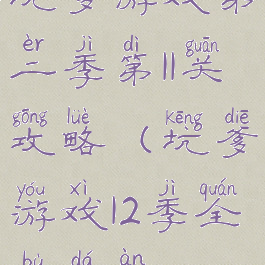 坑爹游戏第
èr jì dì guān
二季第11关
gōng lüè kēng diē
攻略（坑爹
yóu xì jì quán
游戏12季全
bù dá àn